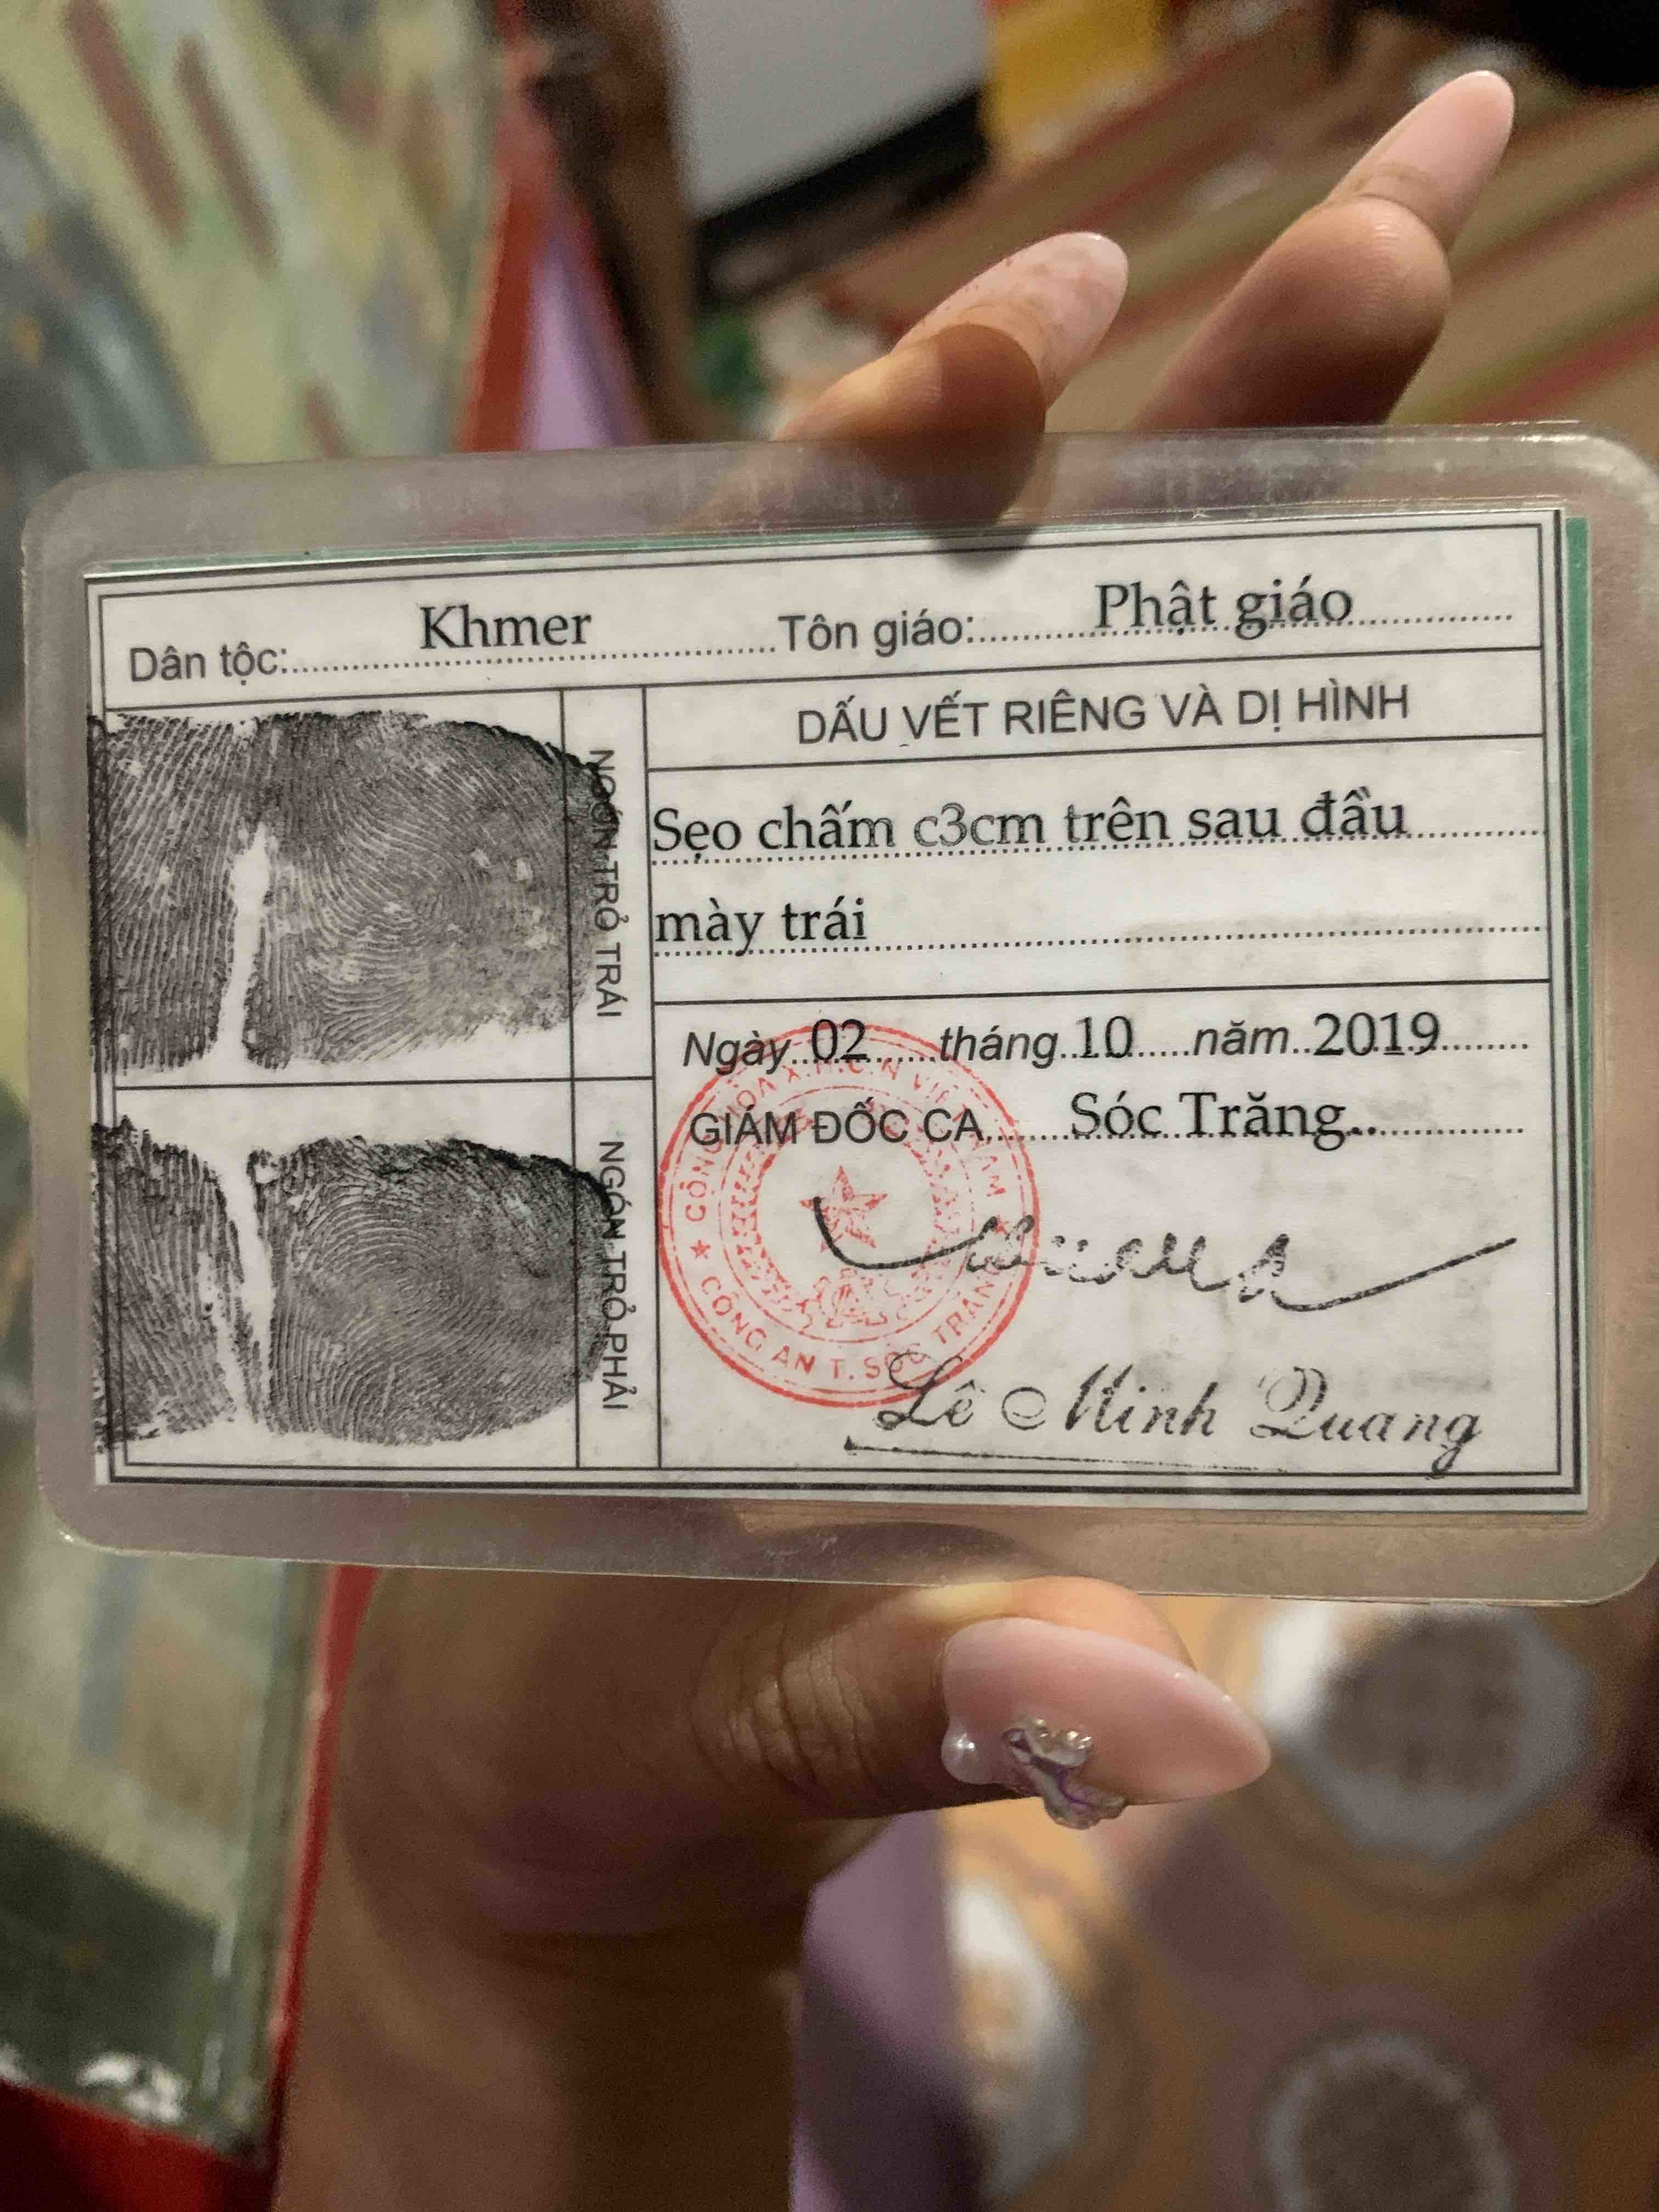 Dân tộc: Khmer Tôn giáo: Phật giáo
NGÓN TRỎ TRÁI
DẤU VẾT RIÊNG VÀ DỊ HÌNH
Sẹo chấm c3cm trên sau đầu
mày trái
NGÓN TRỎ PHẢI
Ngày 02 tháng 10 năm 2019
GIÁM ĐỐC CA Sóc Trăng..
CỘNG HÒA X.H.C.N VIỆT NAM
★ CÔNG AN T. SÓC TRĂNG
Lê Minh Quang